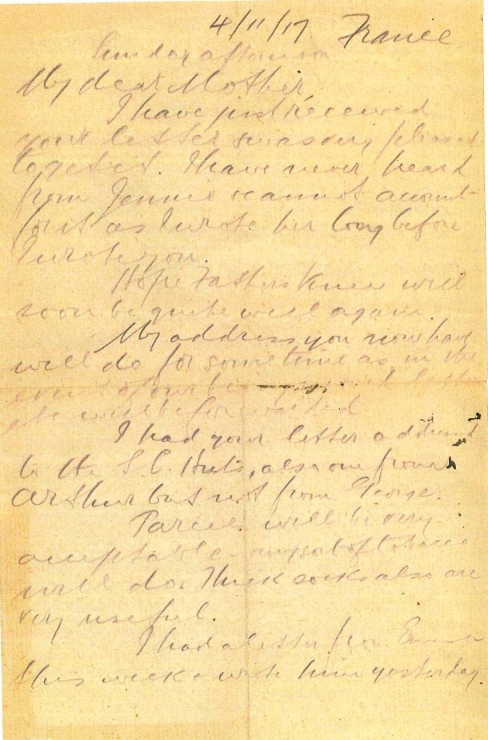 4/11/17 France
Sunday afternoon
My dear Mother,
I have just received
your letter & was only pleased
to get it. I have never heard
from Jennie & cannot account
for it as I wrote her long before
I wrote you.
Hope Father's knee will
soon be quite well again.
My address you now have
will do for sometime as in the
event of our being moved letters
etc will be forwarded
I had your letter addressed
to the S.C. Huts, also one from
Arthur but not from George.
Parcels will be very
acceptable any sort of tobacco
will do. Thick socks also are
very useful.
I had a letter from
this week & wrote him yesterday.